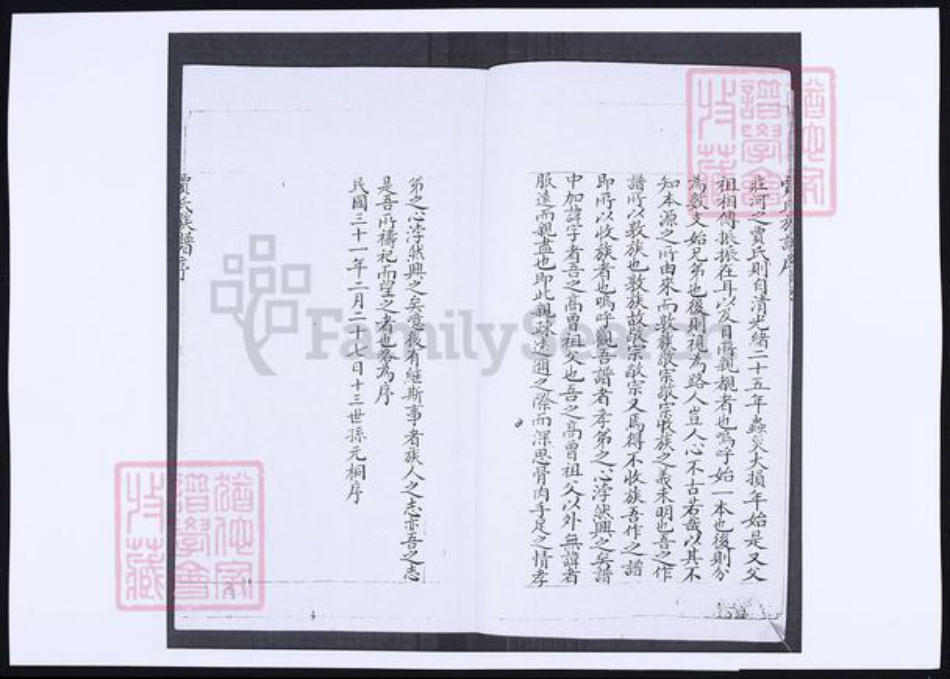 賈氏族譜序
莊河之賈氏則自清光緒二十五年蟲災大損年始是又父
祖相傳振振在耳以及目所親覩者也嗚呼始一本也後則分
為數支始兄弟也後則視為路人豈人心不古若哉以其不
知本源之所由來而敦族敬宗收族之義未明也吾之作
譜所以敦族也敦族故敬宗敬宗又焉得不收族吾作之譜
即所以收族者也嗚呼觀吾譜者孝弟之心浡然興之矣譜
中加諱字者吾之高曾祖父也吾之高曾祖父以外無諱者
服遠而親盡也即此親疎遠邇之際而深思骨肉手足之情孝
弟之心浡然興之矣噫後有継斯事者族人之志亦吾之志
是吾所禱祀而望之者也爰為序
民國三十一年二月二十七日十三世孫元桐序
賈氏族譜序
FamilySearch
譜學會
收藏
譜學會
收藏